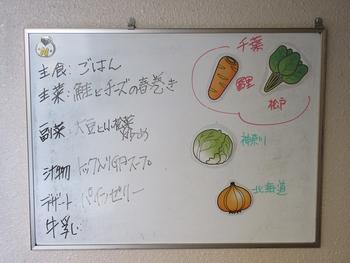 主食：ごはん
主菜：鮭とチーズの春巻き
副菜：大豆と小松菜
炒め
汁物
スープ
デザート パインゼリー
牛乳
千葉
松戸
神奈川
北海道